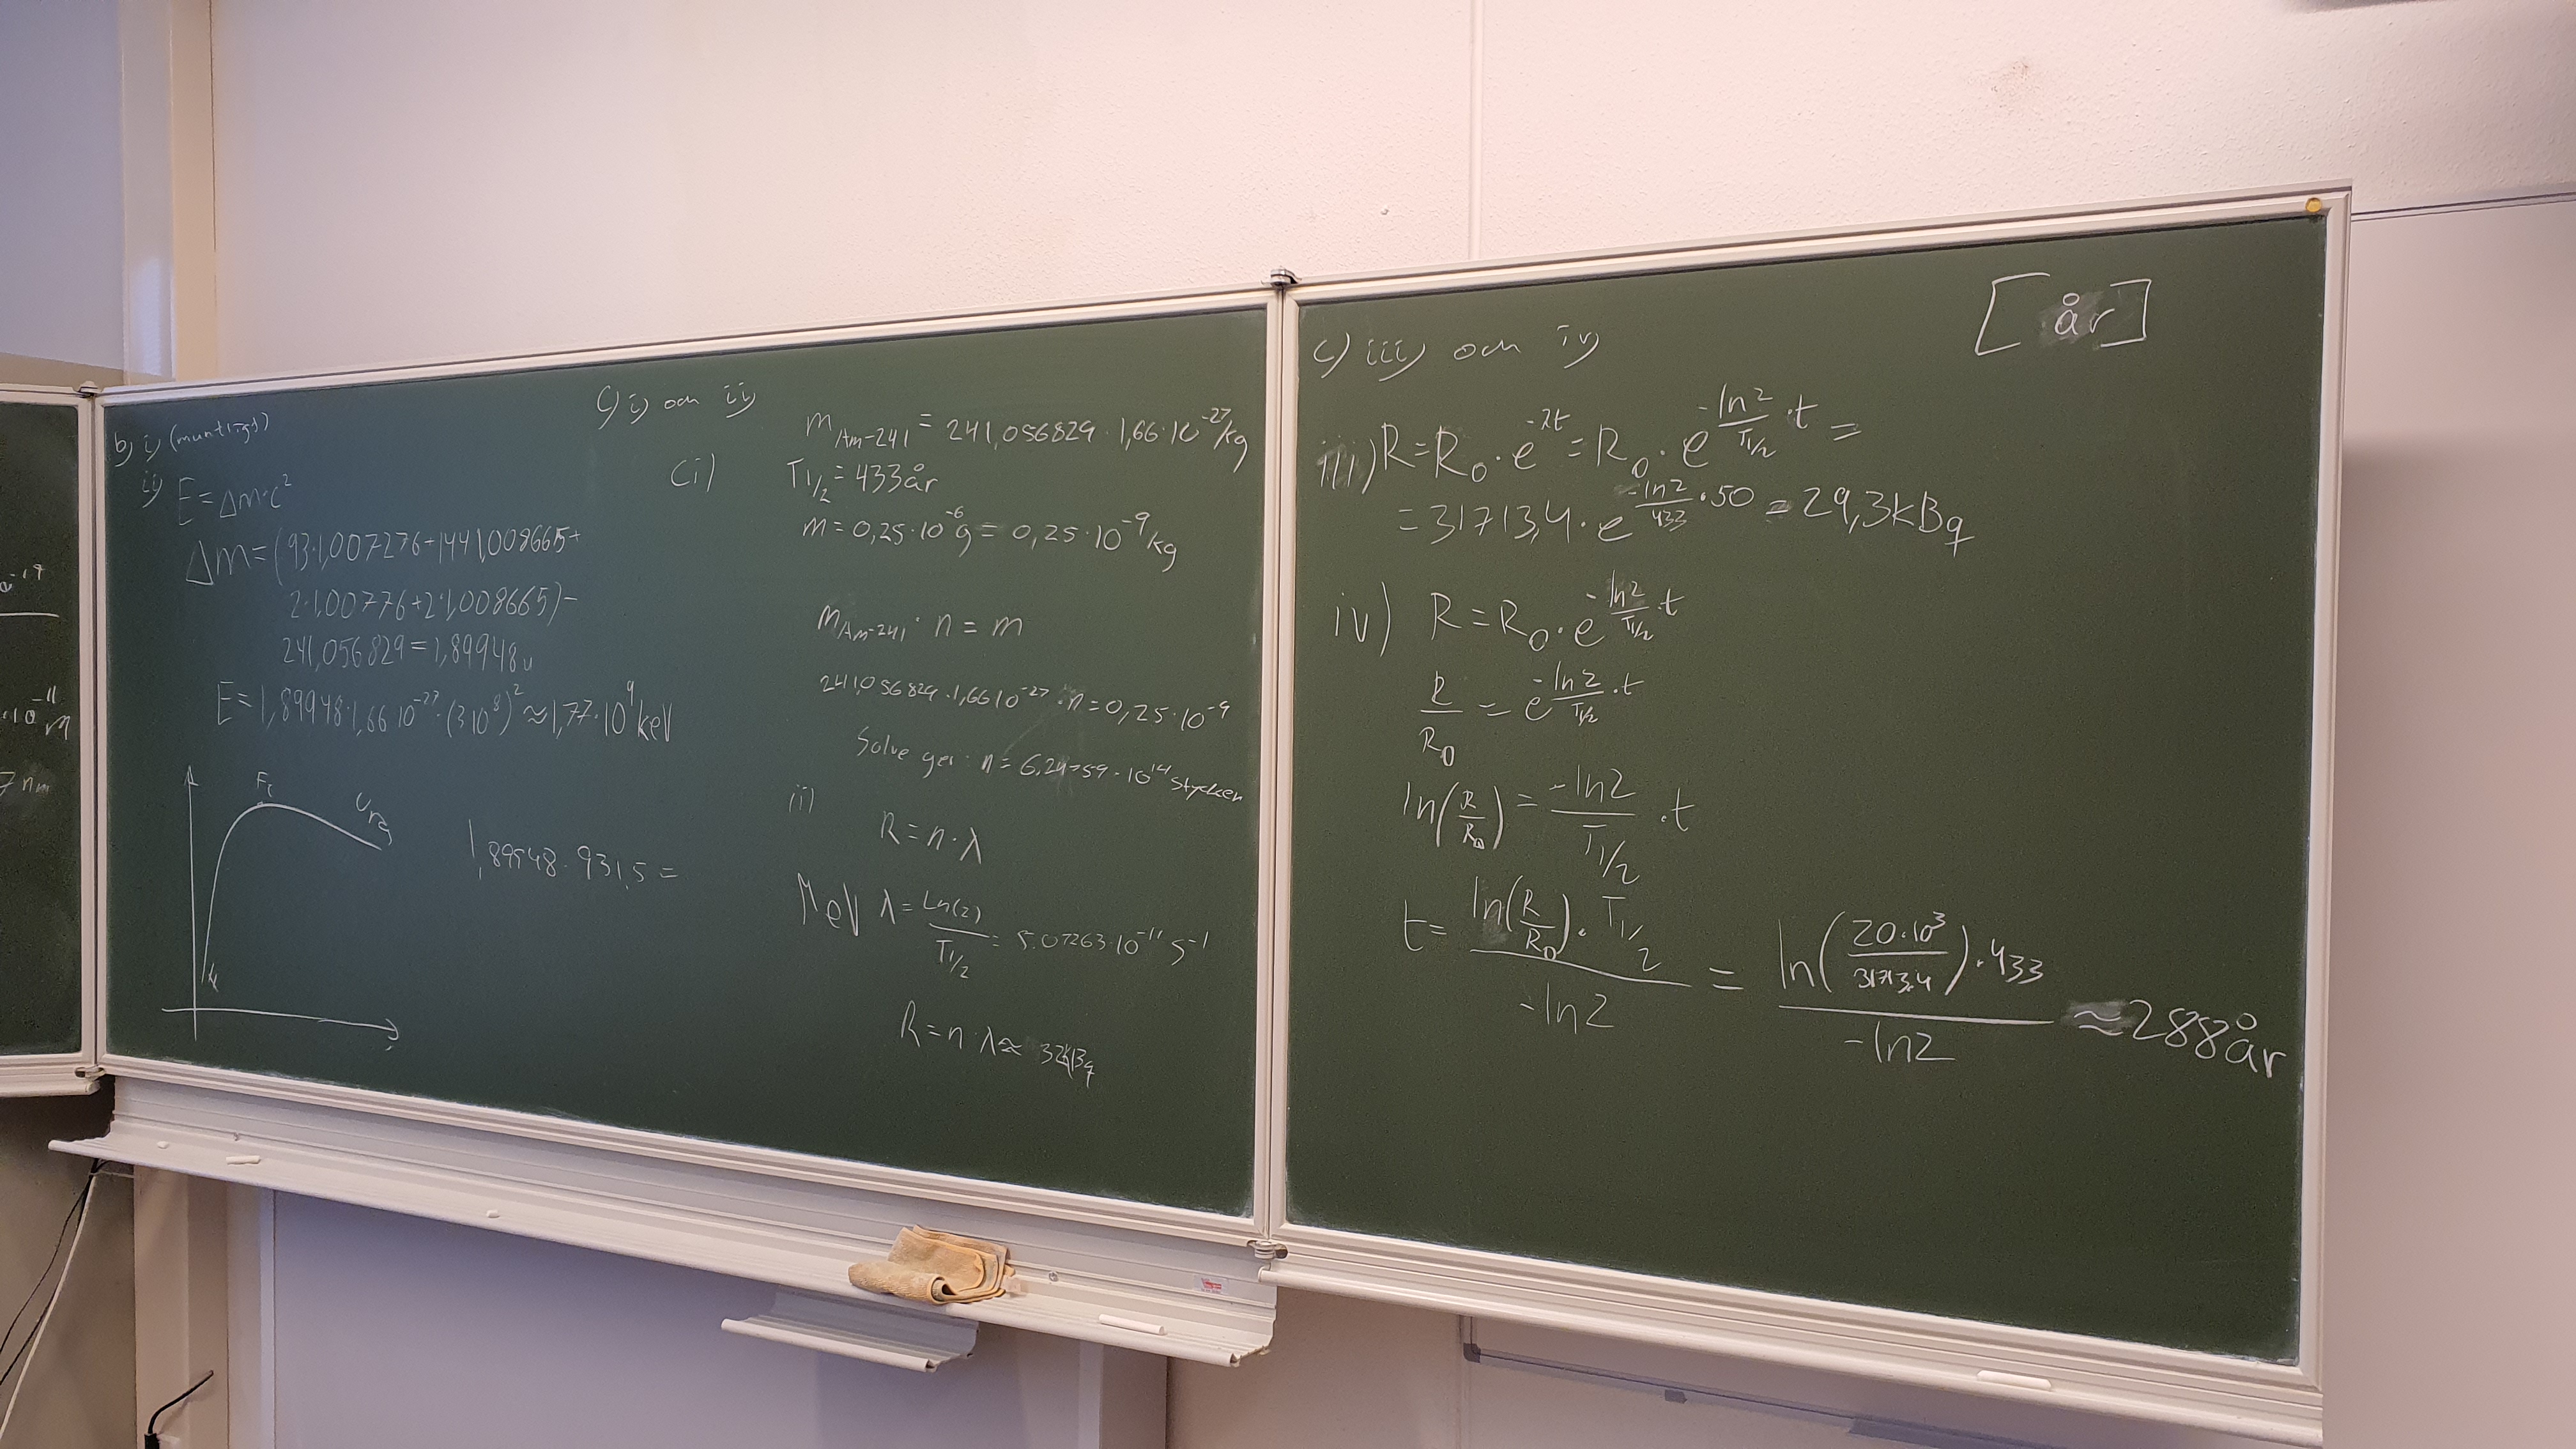 e-19
·10-11 m
7 nm
b) i) (muntligt)
ii) E = Δm·c²
Δm = (93·1,007276+144·1,008665+
2·1,00776+2·1,008665)-
241,056829 = 1,89948u
E = 1,89948·1,66·10⁻²⁷·(3·10⁸)² ≈ 1,77·10⁹ keV
Fe
Uran
1,89948·931,5 =
MeV
c) i) och ii)
ci)
m_Am-241 = 241,056829·1,66·10⁻²⁷ kg
T1/2 = 433 år
m = 0,25·10⁻⁶ g = 0,25·10⁻⁹ kg
m_Am-241 · n = m
241,056829·1,66·10⁻²⁷·n = 0,25·10⁻⁹
Solve ger: n = 6,24759·10¹⁴ stycken
ii)
R = n·λ
λ = Ln(2)/T1/2 = 5.07263·10⁻¹¹ s⁻¹
R = n·λ ≈ 32kBq
[år]
c) iii) och iv)
iii) R = R₀·e^(-λt) = R₀·e^(-ln2/T1/2 ·t) =
= 31713,4·e^(-ln2/433 ·50) = 29,3kBq
iv) R = R₀·e^(-ln2/T1/2 ·t)
R/R₀ = e^(-ln2/T1/2 ·t)
ln(R/R₀) = -ln2/T1/2 ·t
t = ln(R/R₀)·T1/2 / -ln2 = ln(20·10³/31713,4)·433 / -ln2 ≈ 288 år